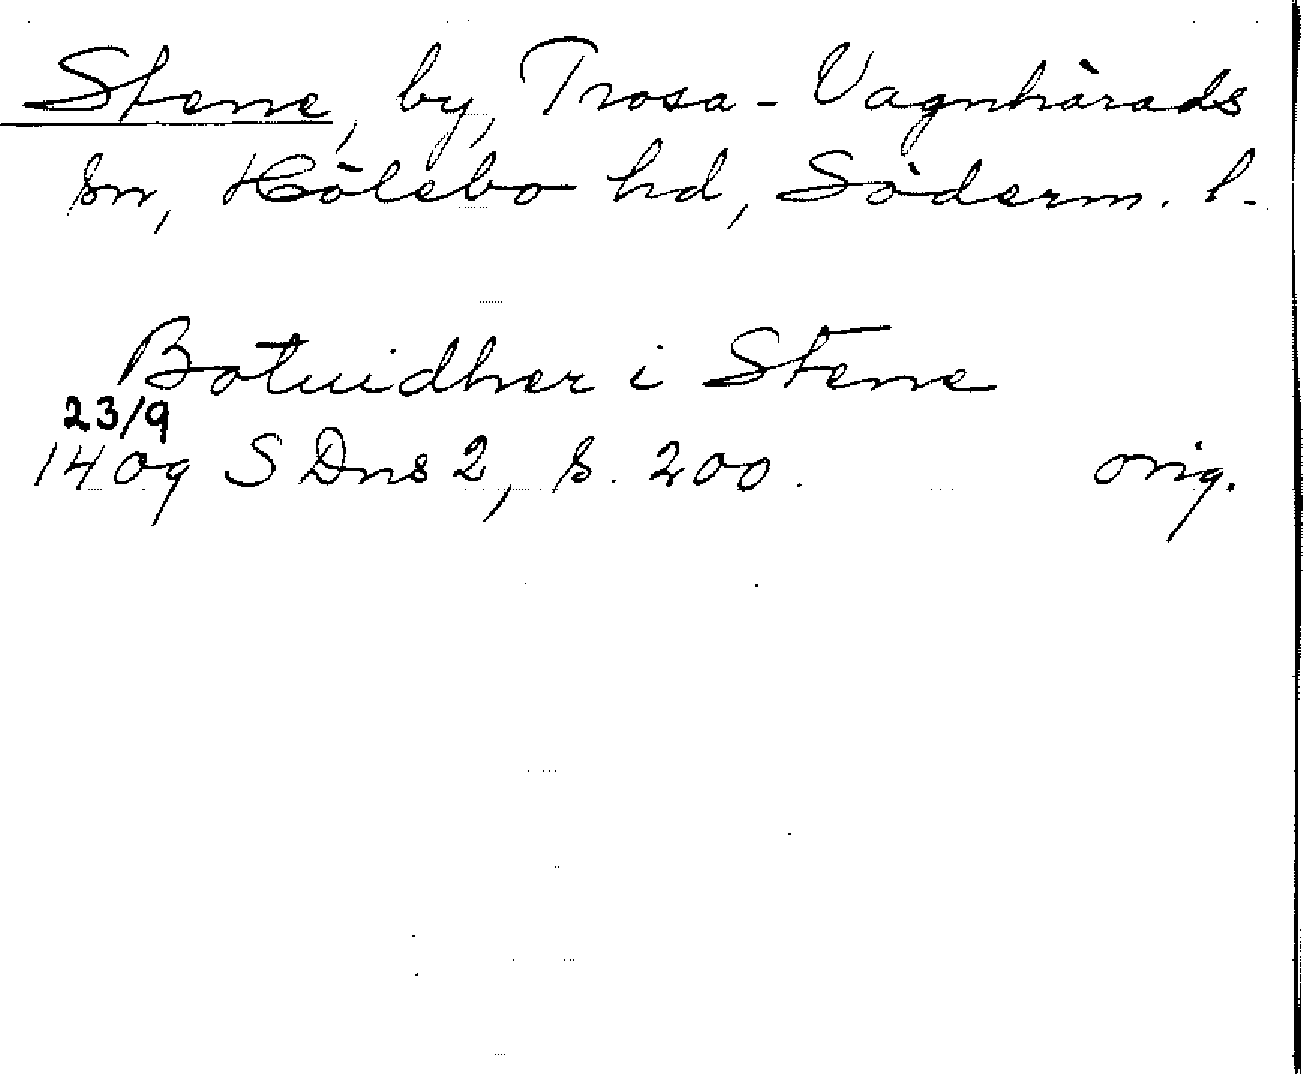 Stene, by, Trosa-Vagnhärads
sn, Hölebo hd, Söderm. l.
Botuidher i Stene
23/9
1409 S Dns 2, s. 200. orig.